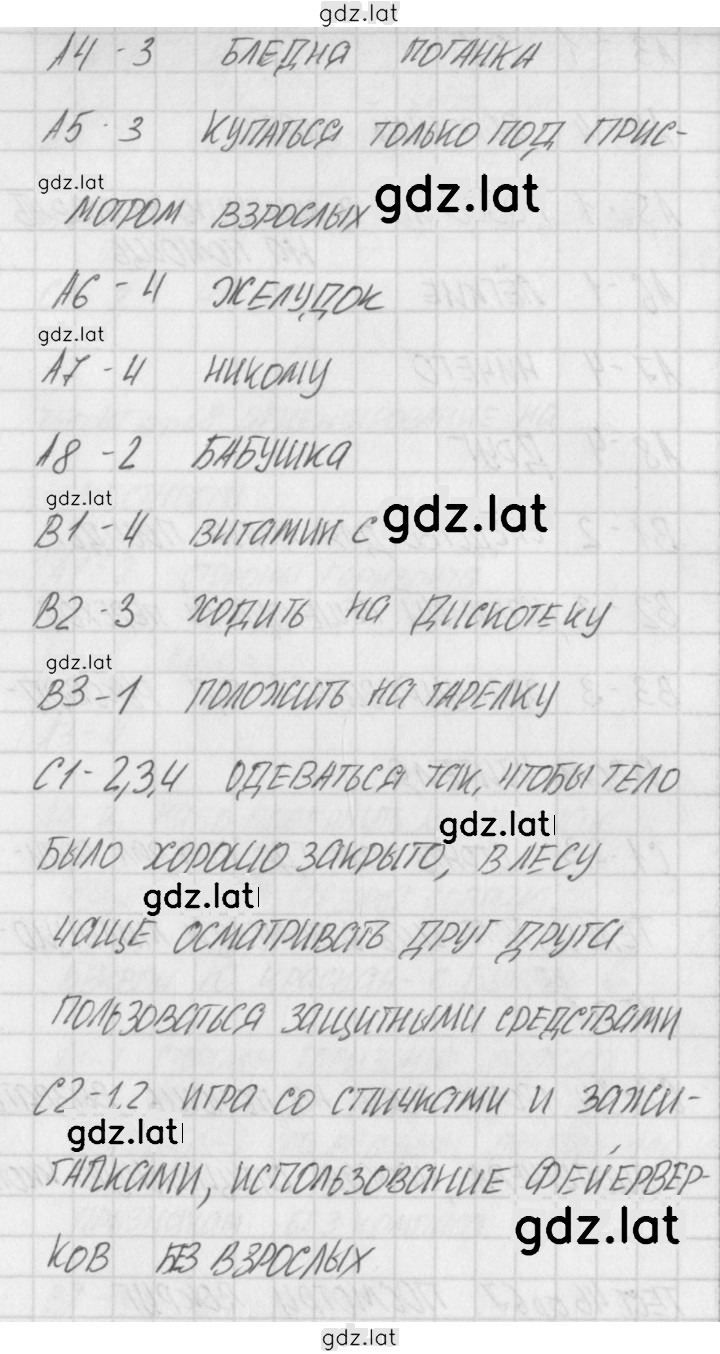 gdz.lat
А4 - 3 БЛЕДНЯ ПОГАНКА
А5 - 3 КУПАТЬСЯ ТОЛЬКО ПОД ПРИС-
gdz.lat
gdz.lat
МОТРОМ ВЗРОСЛЫХ
А6 - 4 ЖЕЛУДОК
gdz.lat
А7 - 4 НИКОМУ
А8 - 2 БАБУШКА
gdz.lat
gdz.lat
В1 - 4 ВИТАМИН С
В2 - 3 ХОДИТЬ НА ДИСКОТЕКУ
gdz.lat
В3 - 1 ПОЛОЖИТЬ НА ТАРЕЛКУ
С1 - 2,3,4 ОДЕВАТЬСЯ ТАК, ЧТОБЫ ТЕЛО
gdz.lat
БЫЛО ХОРОШО ЗАКРЫТО, В ЛЕСУ
gdz.lat
ЧАЩЕ ОСМАТРИВАТЬ ДРУГ ДРУГА
ПОЛЬЗОВАТЬСЯ ЗАЩИТНЫМИ СРЕДСТВАМИ
С2 - 1.2 ИГРА СО СПИЧКАМИ И ЗАЖИ-
gdz.lat
ГАЛКАМИ, ИСПОЛЬЗОВАНИЕ ФЕЙЕРВЕР-
gdz.lat
КОВ БЕЗ ВЗРОСЛЫХ
gdz.lat